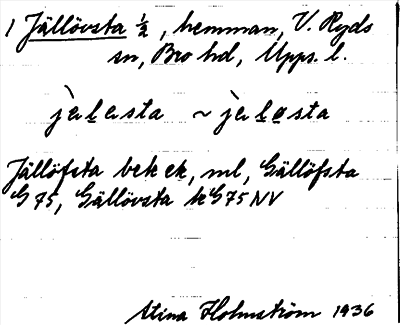 1 Jällövsta ½, hemman, V. Ryds
sn, Bro hd, Upps. l.
jälasta ~ jäləsta
Jällöfsta bek ek, ml, Gällöfsta
G 75, Gällövsta k G75 NV
Stina Holmström 1936